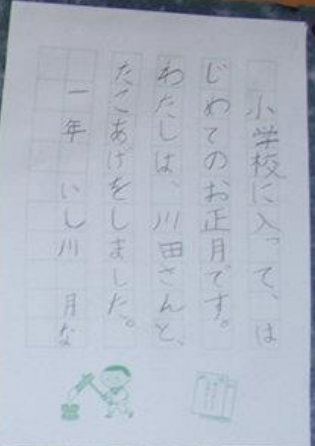 小学校に入って、は
じめてのお正月です。
わたしは、川田さんと、
たこあげをしました。
一年 いし川 月な